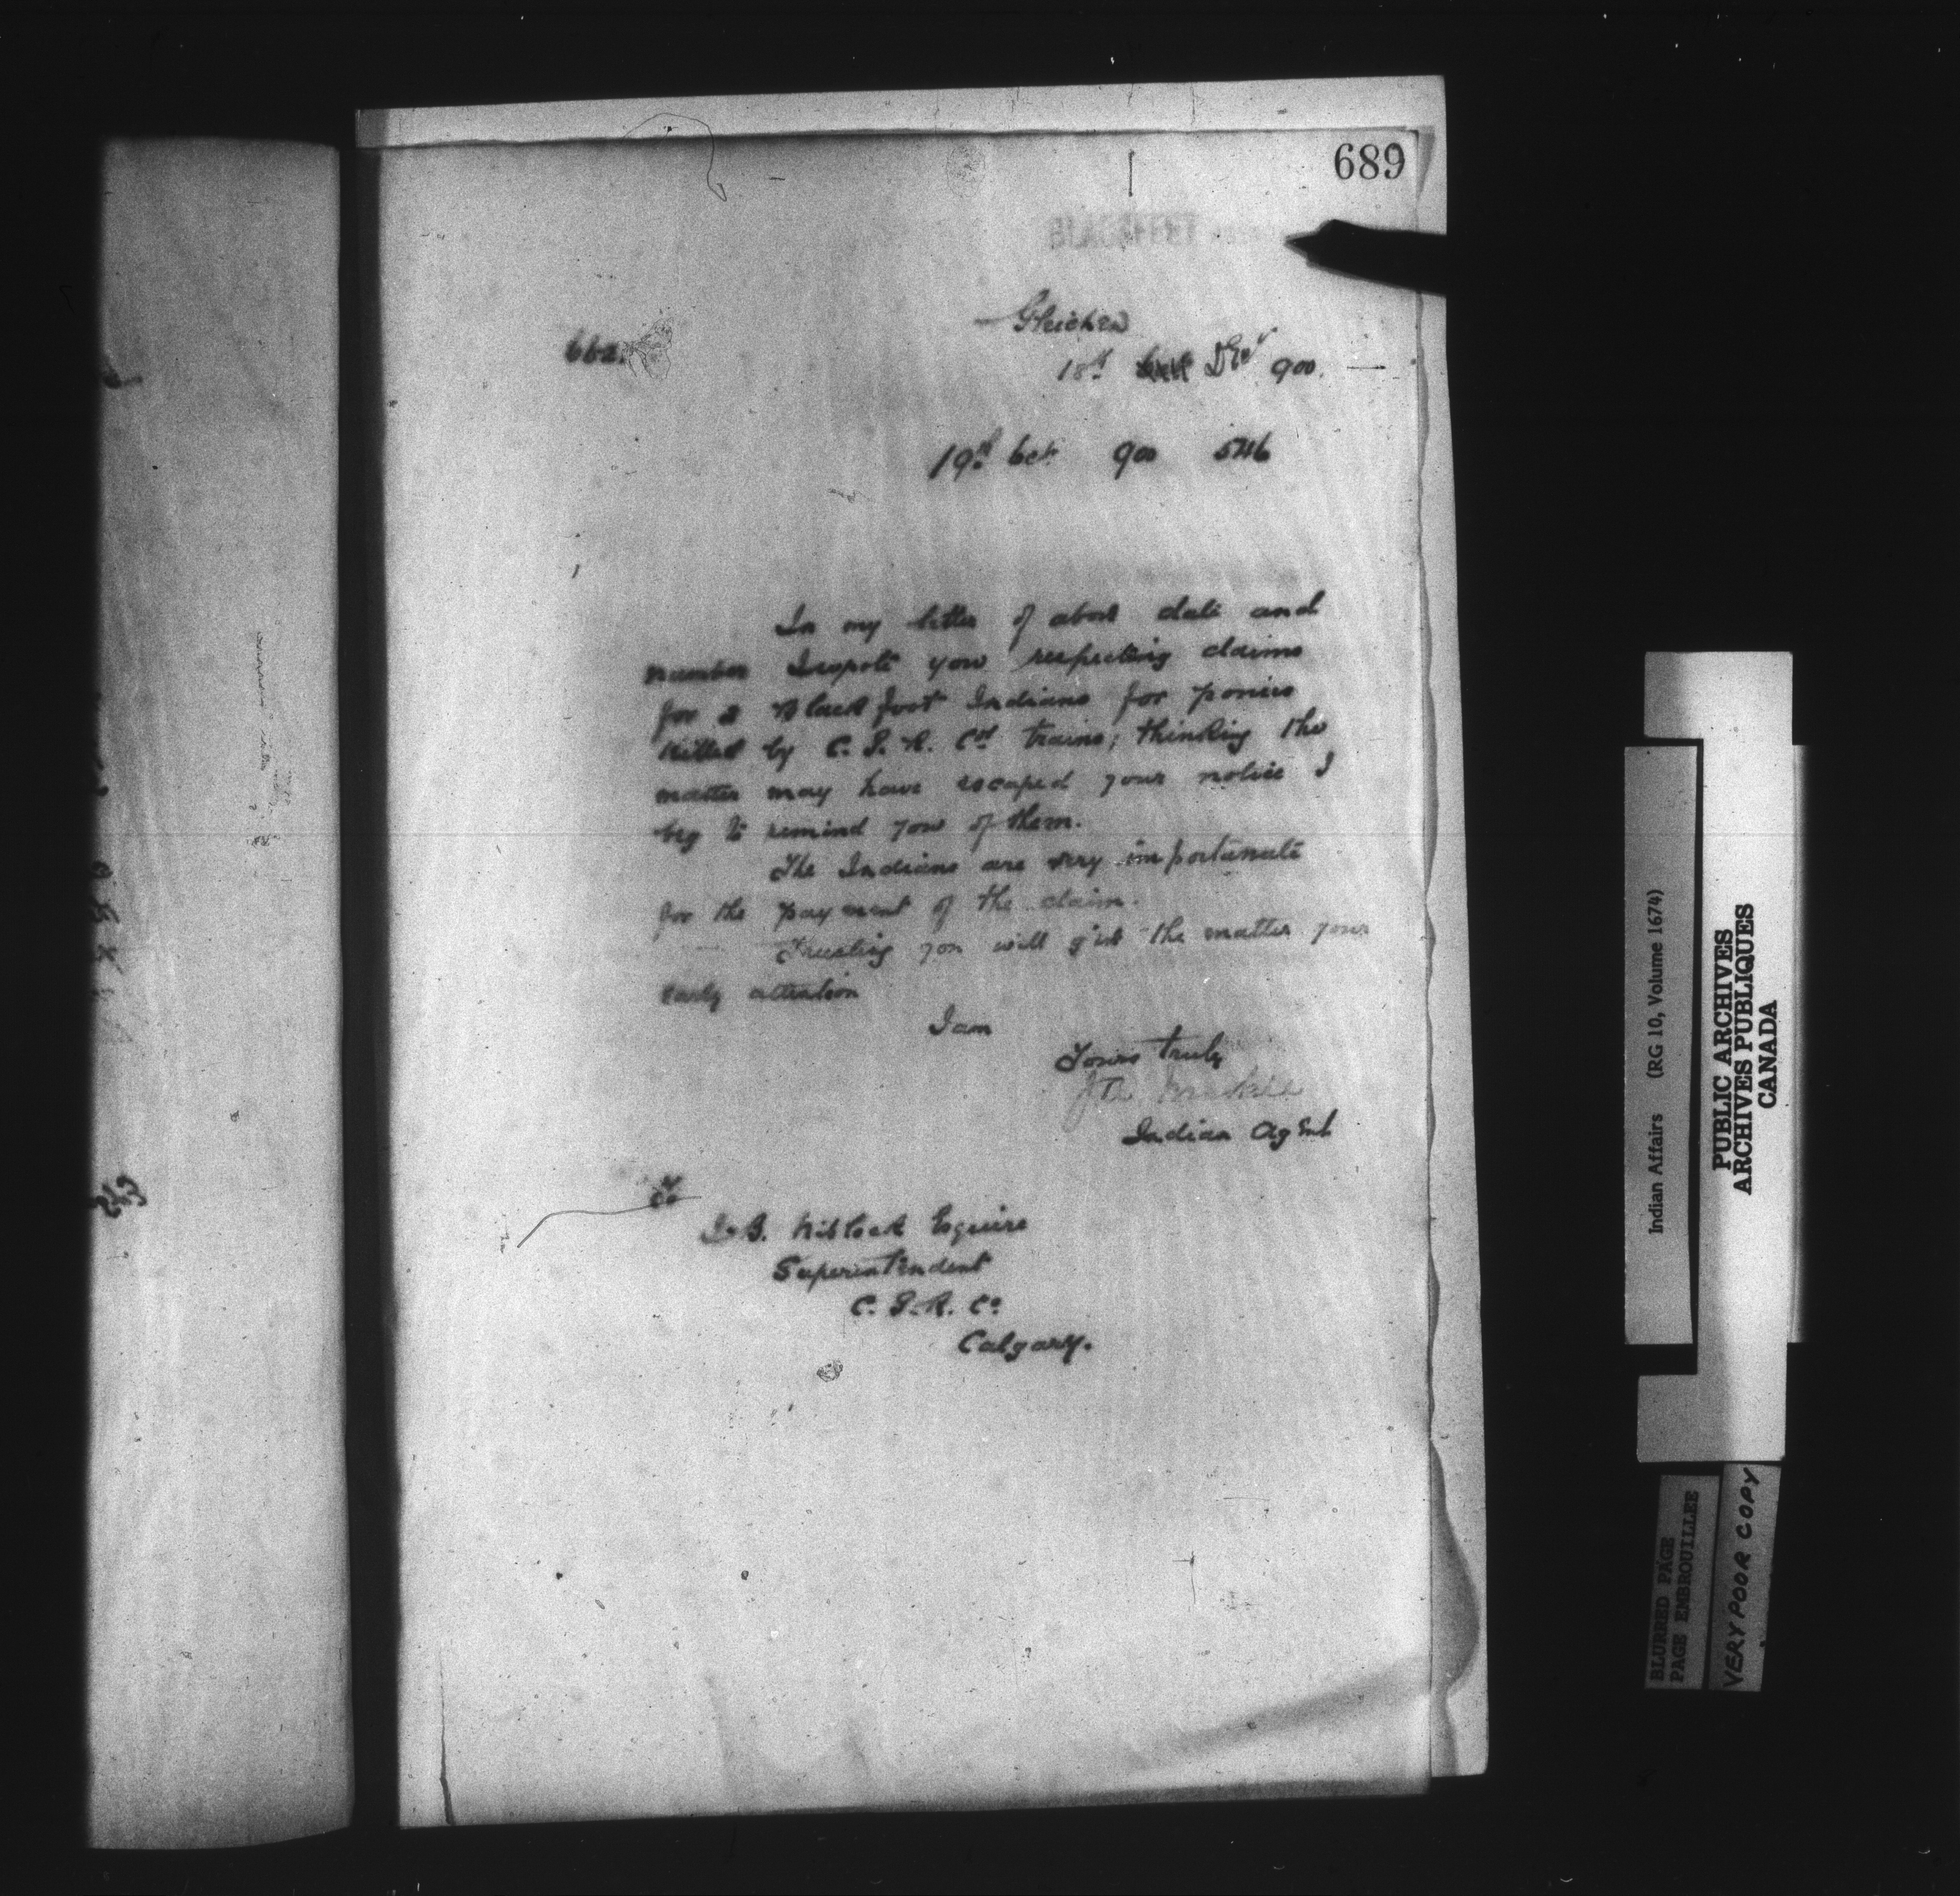 689
Gleichen
662.
18th Decr 900.
19th Oct 900 546
In my letter of above date and
number I wrote you respecting claims
for 2 Blackfoot Indians for ponies
killed by C. P. R. Cos trains; thinking the
matter may have escaped your notice I
beg to remind you of them.
The Indians are very importunate
for the payment of the claim.
Trusting you will give the matter your
early attention
I am
Yours truly
Indian Agent
To
J. Niblock Esquire
Superintendent
C. P. R. Co
Calgary.
Indian Affairs (RG 10, Volume 1674)
PUBLIC ARCHIVES
ARCHIVES PUBLIQUES
CANADA
BLURRED PAGE
PAGE EMBROUILLEE
VERY POOR COPY